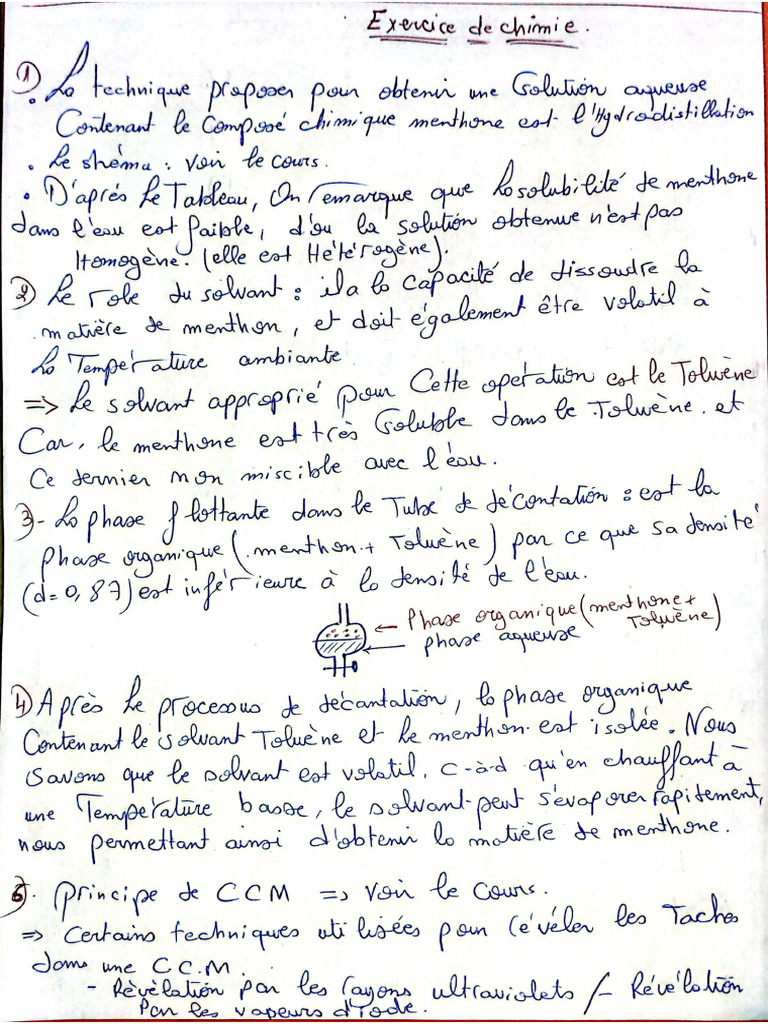 Exercice de chimie.
1) . La technique proposer pour obtenir une Solution aqueuse
Contenant le Composé chimique menthone est l'Hydrodistillation
. Le shéma : voir le cours.
. D'après le Tableau, On remarque que la solubilité de menthone
dans l'eau est faible, d'ou la solution obtenue n'est pas
Homogène. (elle est Hétérogène).
2) Le role du solvant : il a la capacité de dissoudre la
matière de menthon, et doit également être volatil à
la Température ambiante.
=> Le solvant approprié pour Cette opération est le Toluène
Car, le menthone est très Soluble dans le Toluène. et
Ce dernier non miscible avec l'eau.
3- La phase flottante dans le Tube de décontation : est la
phase organique (menthon + Toluène) par ce que sa densité
(d=0,87) est inférieure à la densité de l'eau.
← Phase organique (menthone +
Toluène)
phase aqueuse
4) Après le processus de décantation, la phase organique
Contenant le solvant Toluène et le menthon est isolée. Nous
savons que le solvant est volatil. c-à-d qu'en chauffant à
une Température basse, le solvant peut s'évaporer rapitement,
nous permettant ainsi d'obtenir la matière de menthone.
5). principe de CCM => voir le cours.
=> Certains techniques utilisées pour révéler les Taches
dans une C.C.M.
- Révélation par les rayons ultraviolets /- Révélation
Par les vapeurs d'Iode.